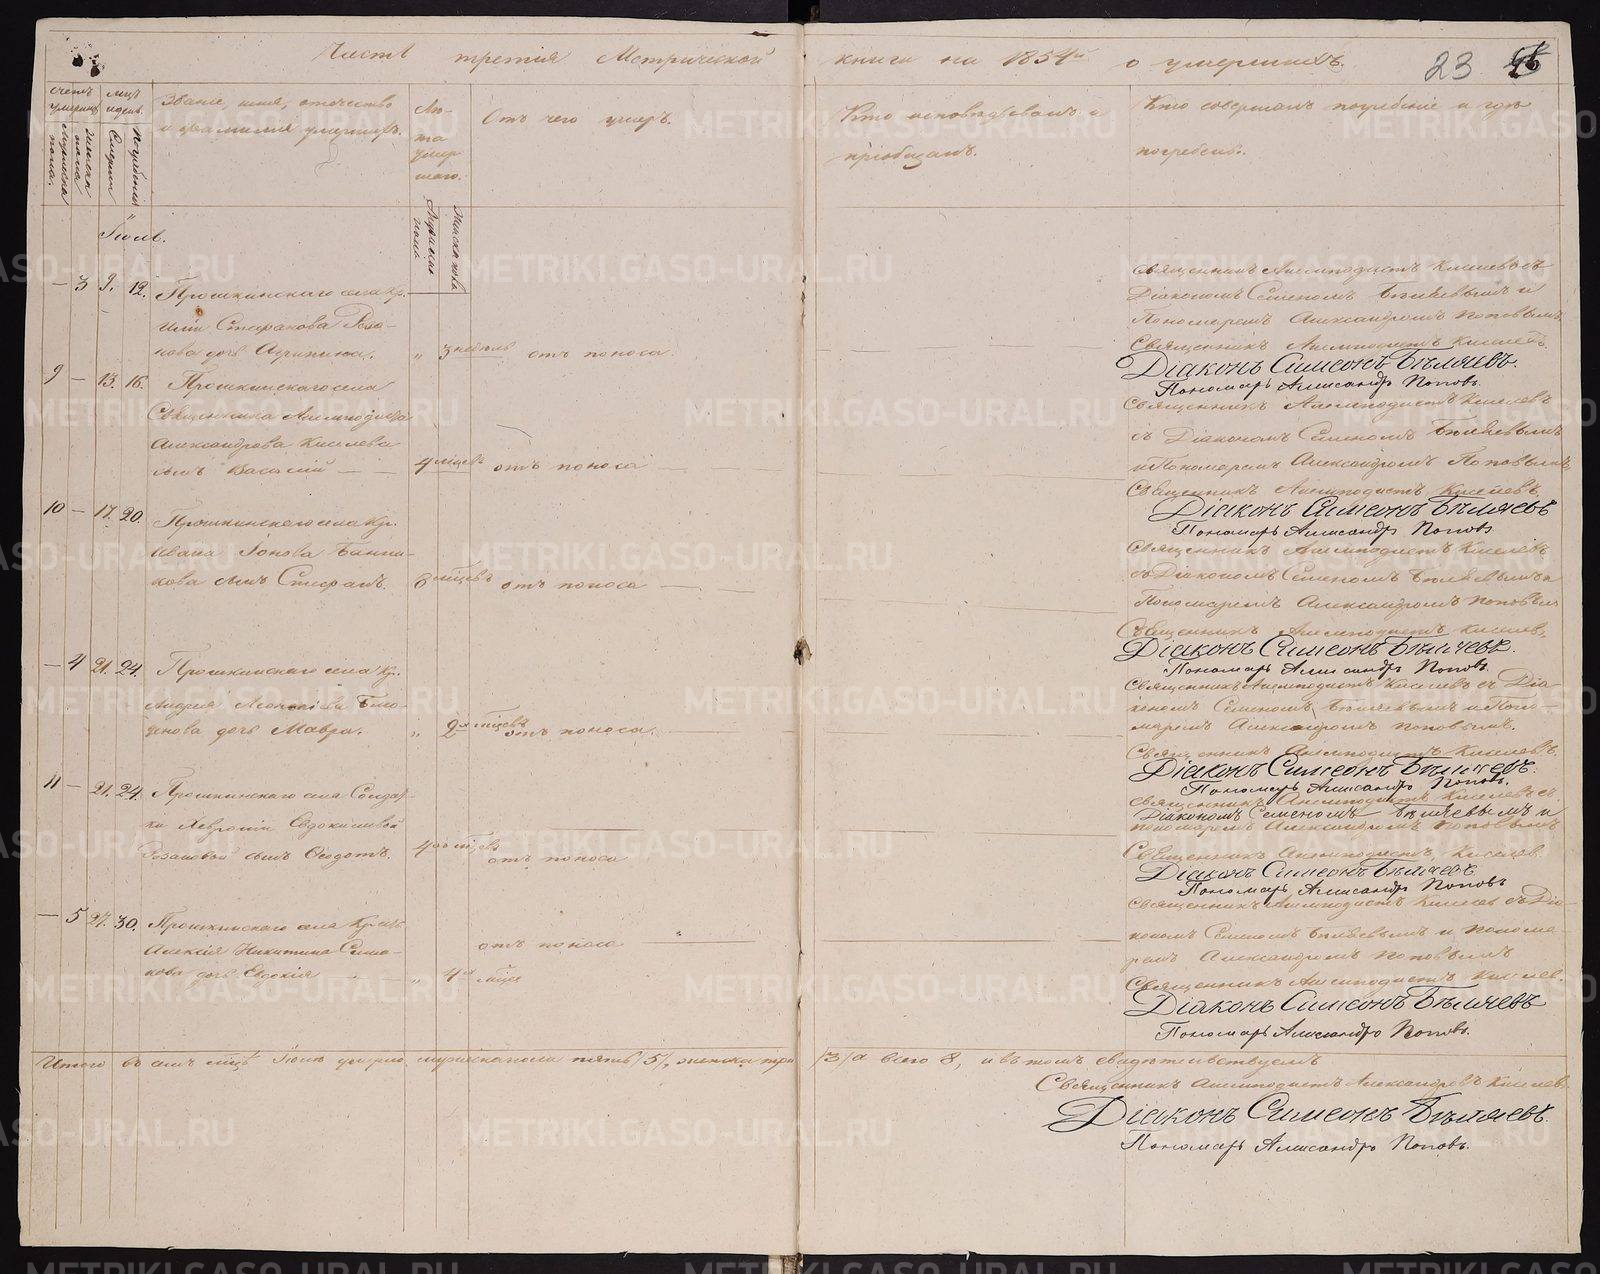 Часть третія Метрической книги на 1854й о умершихъ.
23
счетъ умершихъ
Мужеска пола.
Женска пола
мцъ и день.
Смерти
Погребенія
Званіе, имя, отчество
и фамилія умершихъ.
Лѣта умершаго.
Мужеска пола
Женска пола
Отъ чего умеръ.
Кто исповѣдывалъ и
пріобщалъ.
Кто совершалъ погребеніе и гдѣ
погребенъ.
Іюль.
— 3 9. 12. Прошкинскаго села кр.
Стефанова
дочь Агрипина. " 3 недѣль отъ поноса.
Священникъ Анемподистъ Киселевъ съ
Діакономъ Семеномъ Бѣляевымъ и
Пономаремъ Александромъ Поповымъ.
Священникъ Анемподистъ Киселевъ.
Діаконъ Симеонъ Бѣляевъ.
Пономарь Александръ Поповъ.
9 — 13. 16. Прошкинскаго села
Священника Анемподиста
Александрова Киселева
сынъ Василій — — 4 мцевъ отъ поноса
Священникъ Анемподистъ Киселевъ
съ Діакономъ Семеномъ Бѣляевымъ
и Пономаремъ Александромъ Поповымъ
Священникъ Анемподистъ Киселевъ.
Діаконъ Симеонъ Бѣляевъ
Пономарь Александръ Поповъ
10 — 17. 20. Прошкинскаго села кр.
Ивана Іонова
сынъ Стефанъ. мцевъ отъ поноса —
Священникъ Анемподистъ Киселевъ
съ Діакономъ Семеномъ Бѣляевымъ и
Пономаремъ Александромъ Поповым
Священникъ Анемподистъ Киселевъ,
Діаконъ Симеонъ Бѣляевъ.
Пономарь Александръ Поповъ.
— 4 21. 24. Прошкинскаго села кр.
Андрея
дочь Мавра. " 2х мцевъ отъ поноса.
Священникъ Анемподистъ Киселевъ съ Діа-
кономъ Семеномъ Бѣляевымъ и Поно-
маремъ Александромъ Поповымъ.
Священникъ Анемподистъ Киселевъ.
Діаконъ Симеонъ Бѣляевъ.
Пономарь Александръ Поповъ.
11 — 21. 24. Прошкинскаго села Солдат-
ки Хевроніи Евдокимовой
сынъ Федотъ. мцевъ отъ поноса
Священникъ Анемподистъ Киселевъ съ
Діакономъ Семеномъ Бѣляевымъ и
пономаремъ Александромъ Поповымъ
Священникъ Анемподистъ Киселев.
Діаконъ Симеонъ Бѣляевъ.
Пономарь Александръ Поповъ
— 5 27. 30. Прошкинскаго села
Алексія Никитина Симо-
нова дочь Евдокія " 4х мцев отъ поноса —
Священникъ Анемподистъ Киселев съ Діа-
кономъ Семеномъ Бѣляевымъ и понома-
ремъ Александромъ Поповымъ
Священникъ Анемподистъ Киселев.
Діаконъ Симеонъ Бѣляевъ
Пономарь Александръ Поповъ.
Итого въ семъ мцѣ Іюлѣ умерло мужеска пола пять /5/, женска три /3/ а всего 8, и въ томъ свидѣтельствуемъ
Священникъ Анемподистъ Александровъ Киселев.
Діаконъ Симеонъ Бѣляевъ.
Пономарь Александръ Поповъ.
METRIKI.GASO-URAL.RU